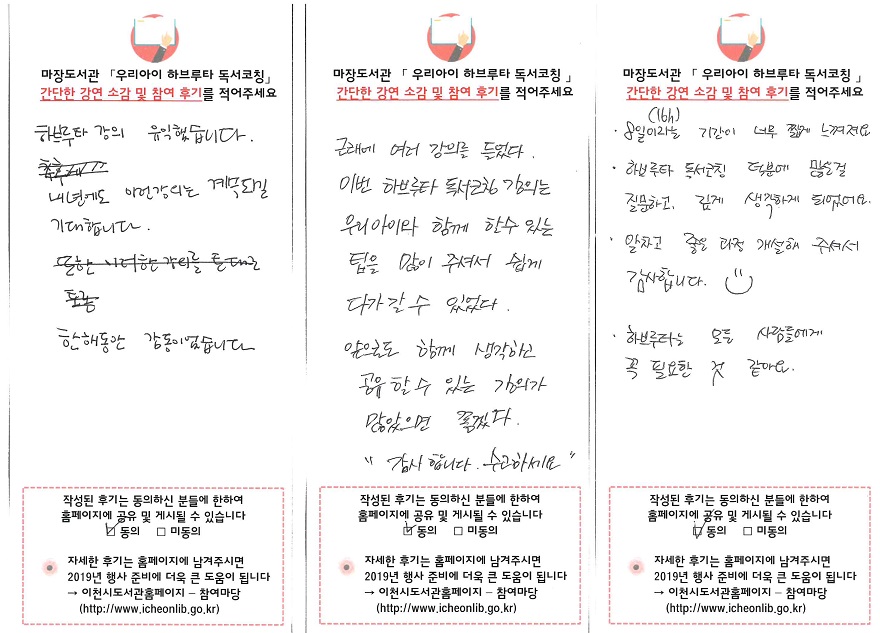 마장도서관 「우리아이 하브루타 독서코칭」
간단한 강연 소감 및 참여 후기를 적어주세요
하브루타 강의 유익했습니다.
내년에도 이런강의는 계속되길
기대합니다.
한해동안 감동이었습니다
작성된 후기는 동의하신 분들에 한하여
홈페이지에 공유 및 게시될 수 있습니다
☑ 동의 □ 미동의
자세한 후기는 홈페이지에 남겨주시면
2019년 행사 준비에 더욱 큰 도움이 됩니다
→ 이천시도서관홈페이지 – 참여마당
(http://www.icheonlib.go.kr)
마장도서관 「 우리아이 하브루타 독서코칭 」
간단한 강연 소감 및 참여 후기를 적어주세요
근래에 여러 강의를 들었다.
이번 하브루타 독서코칭 강의는
우리아이와 함께 할수 있는
팁을 많이 주셔서 쉽게
다가갈 수 있었다.
앞으로도 함께 생각하고
공유할 수 있는 강의가
많았으면 좋겠다.
" 감사합니다. 수고하세요 "
작성된 후기는 동의하신 분들에 한하여
홈페이지에 공유 및 게시될 수 있습니다
☑ 동의 □ 미동의
자세한 후기는 홈페이지에 남겨주시면
2019년 행사 준비에 더욱 큰 도움이 됩니다
→ 이천시도서관홈페이지 – 참여마당
(http://www.icheonlib.go.kr)
마장도서관 「 우리아이 하브루타 독서코칭 」
간단한 강연 소감 및 참여 후기를 적어주세요
(16h)
· 8일이라는 기간이 너무 짧게 느껴져요
· 하브루타 독서코칭 덕분에 많은걸
질문하고, 깊게 생각하게 되었어요.
· 알차고 좋은 과정 개설해 주셔서
감사합니다.
· 하브루타는 모든 사람들에게
꼭 필요한 것 같아요.
작성된 후기는 동의하신 분들에 한하여
홈페이지에 공유 및 게시될 수 있습니다
☑ 동의 □ 미동의
자세한 후기는 홈페이지에 남겨주시면
2019년 행사 준비에 더욱 큰 도움이 됩니다
→ 이천시도서관홈페이지 – 참여마당
(http://www.icheonlib.go.kr)